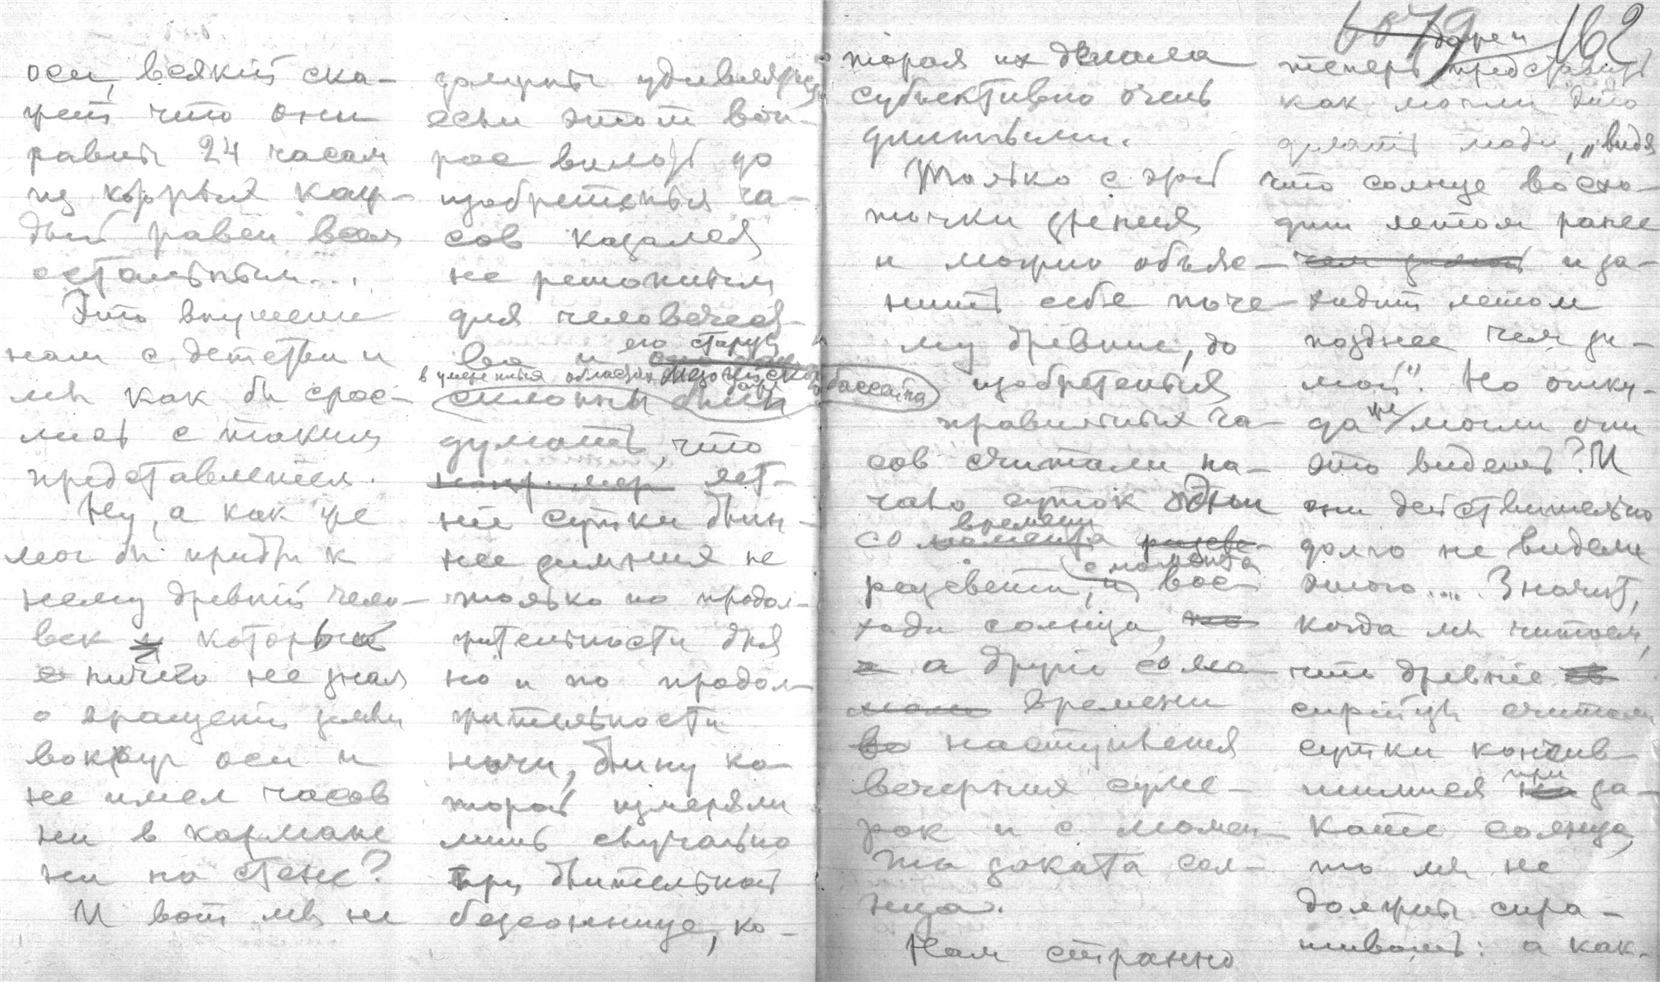 оси, всякий ска-
жет что они
равны 24 часам
из которых каж-
дый равен всем
остальным...
Это внушено
нам с детства и
мы как бы срос-
лись с таким
представлением.
Ну, а как же
мог бы прийти к
нему древний чело-
век который
ничего не знал
о вращении земли
вокруг оси и
не имел часов
ни в кармане
ни на стене?
И вот мы не
должны удивляться
если этот воп-
рос вплоть до
изобретения ча-
сов казался
не решонным
для человечес-
ва и его старцы
в умах области
склонны были
думать, что
например лет-
ние сутки длин-
нее зимних не
только по продол-
жительности дня
но и по продол-
жительности
ночи, длину ко-
торой измеряли
лишь случайно
при длительной
безсоннице, ко-
6079 162
торая их делала
субъективно очень
длинными.
Только с этой
точки зрения
и можно объяс-
нить себе поче-
му древние, до
бассейна
изобретения
правильных ча-
сов считали на-
чало суток одни
со момента времени
разсвета, с момента вос-
хода солнца,
а други со
времени
наступления
вечерния суме-
рок и с момен-
та заката сол-
нца.
Нам странно
теперь представить
как могли это
делать люди, „видя
что солнце восхо-
дит летом ранее
и за-
ходит летом
позднее чем зи-
мой". Но отку-
да же могли они
это видеть? И
они действительно
долго не видели
этого.... Значит,
когда мы читаем,
что древние
сирийцы считали
сутки кончив-
шимися при за-
кате солнца,
то мы не
должны спра-
шивать: а как-